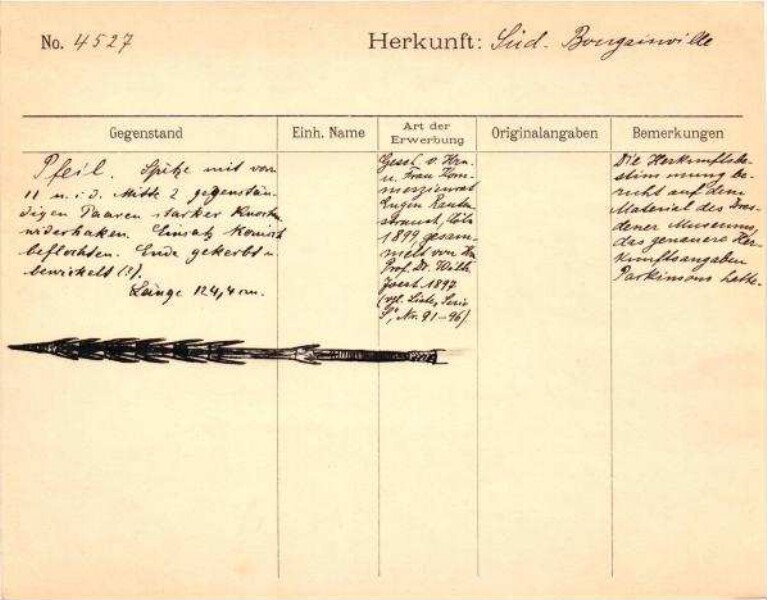 No. 4527
Herkunft: Süd. Bougainville
Gegenstand
Einh. Name
Art der Erwerbung
Originalangaben
Bemerkungen
Pfeil. Spitze mit vorn
11 u. i. d. Mitte 2 gegenstän-
digen Paaren starker Knochen
widerhaken. Einsatz konisch
beflochten. Ende gekerbt u.
bewickelt (?).
Länge 124,4 cm.
Gesch. v. Hrn.
u. Frau Kom-
merzienrat
Eugen Rauten-
strauch, Cöln
1899, gesam-
melt von Hn
Prof. Dr. Wilh.
Joest 1897
(vgl. Liste, Serie
S, Nr. 91-96)
Die Herkunftsbe-
stimmung be-
ruht auf dem
Material des Dres-
dener Museums,
das genauere Her-
kunftsangaben
Parkinsons hatte.